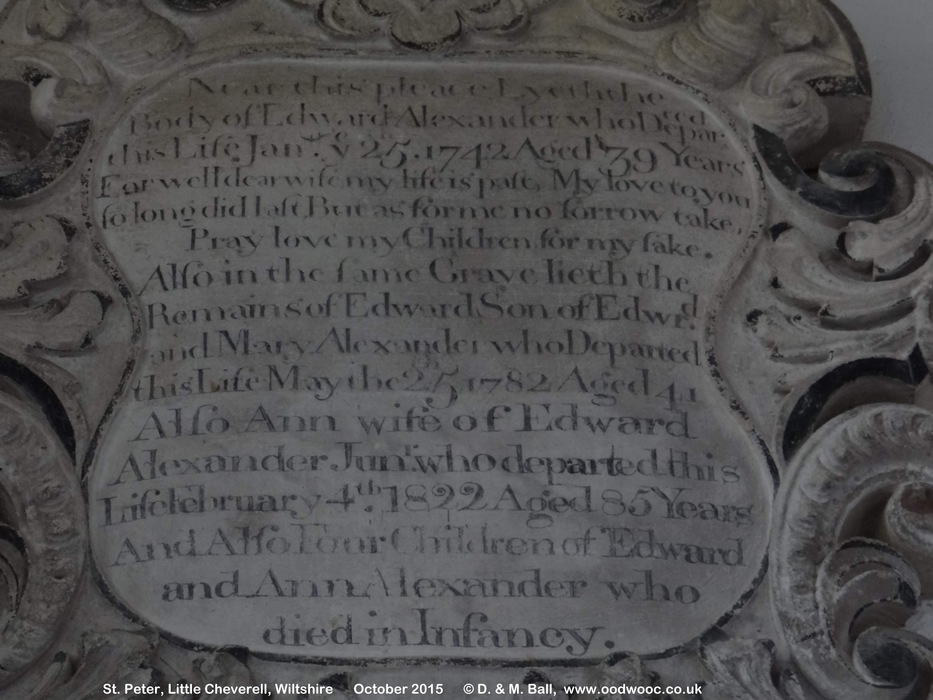 Near this pleace Lyeth the
Body of Edward Alexander who Depar:ted
this Life Jan.ry ye 25, 1742 Aged 39 Years
Farwell dear wife my life is past, My love to you
so long did last, But as for me no sorrow take,
Pray love my Children for my sake.
Also in the same Grave lieth the
Remains of Edward Son of Edwr.d
and Mary Alexander who Departed
this Life May the 25, 1782 Aged 41
Also Ann wife of Edward
Alexander Junr. who departed this
Life February 4th. 1822 Aged 85 Years
And Also Four Children of Edward
and Ann Alexander who
died in Infancy.
St. Peter, Little Cheverell, Wiltshire October 2015 © D. & M. Ball, www.oodwooc.co.uk